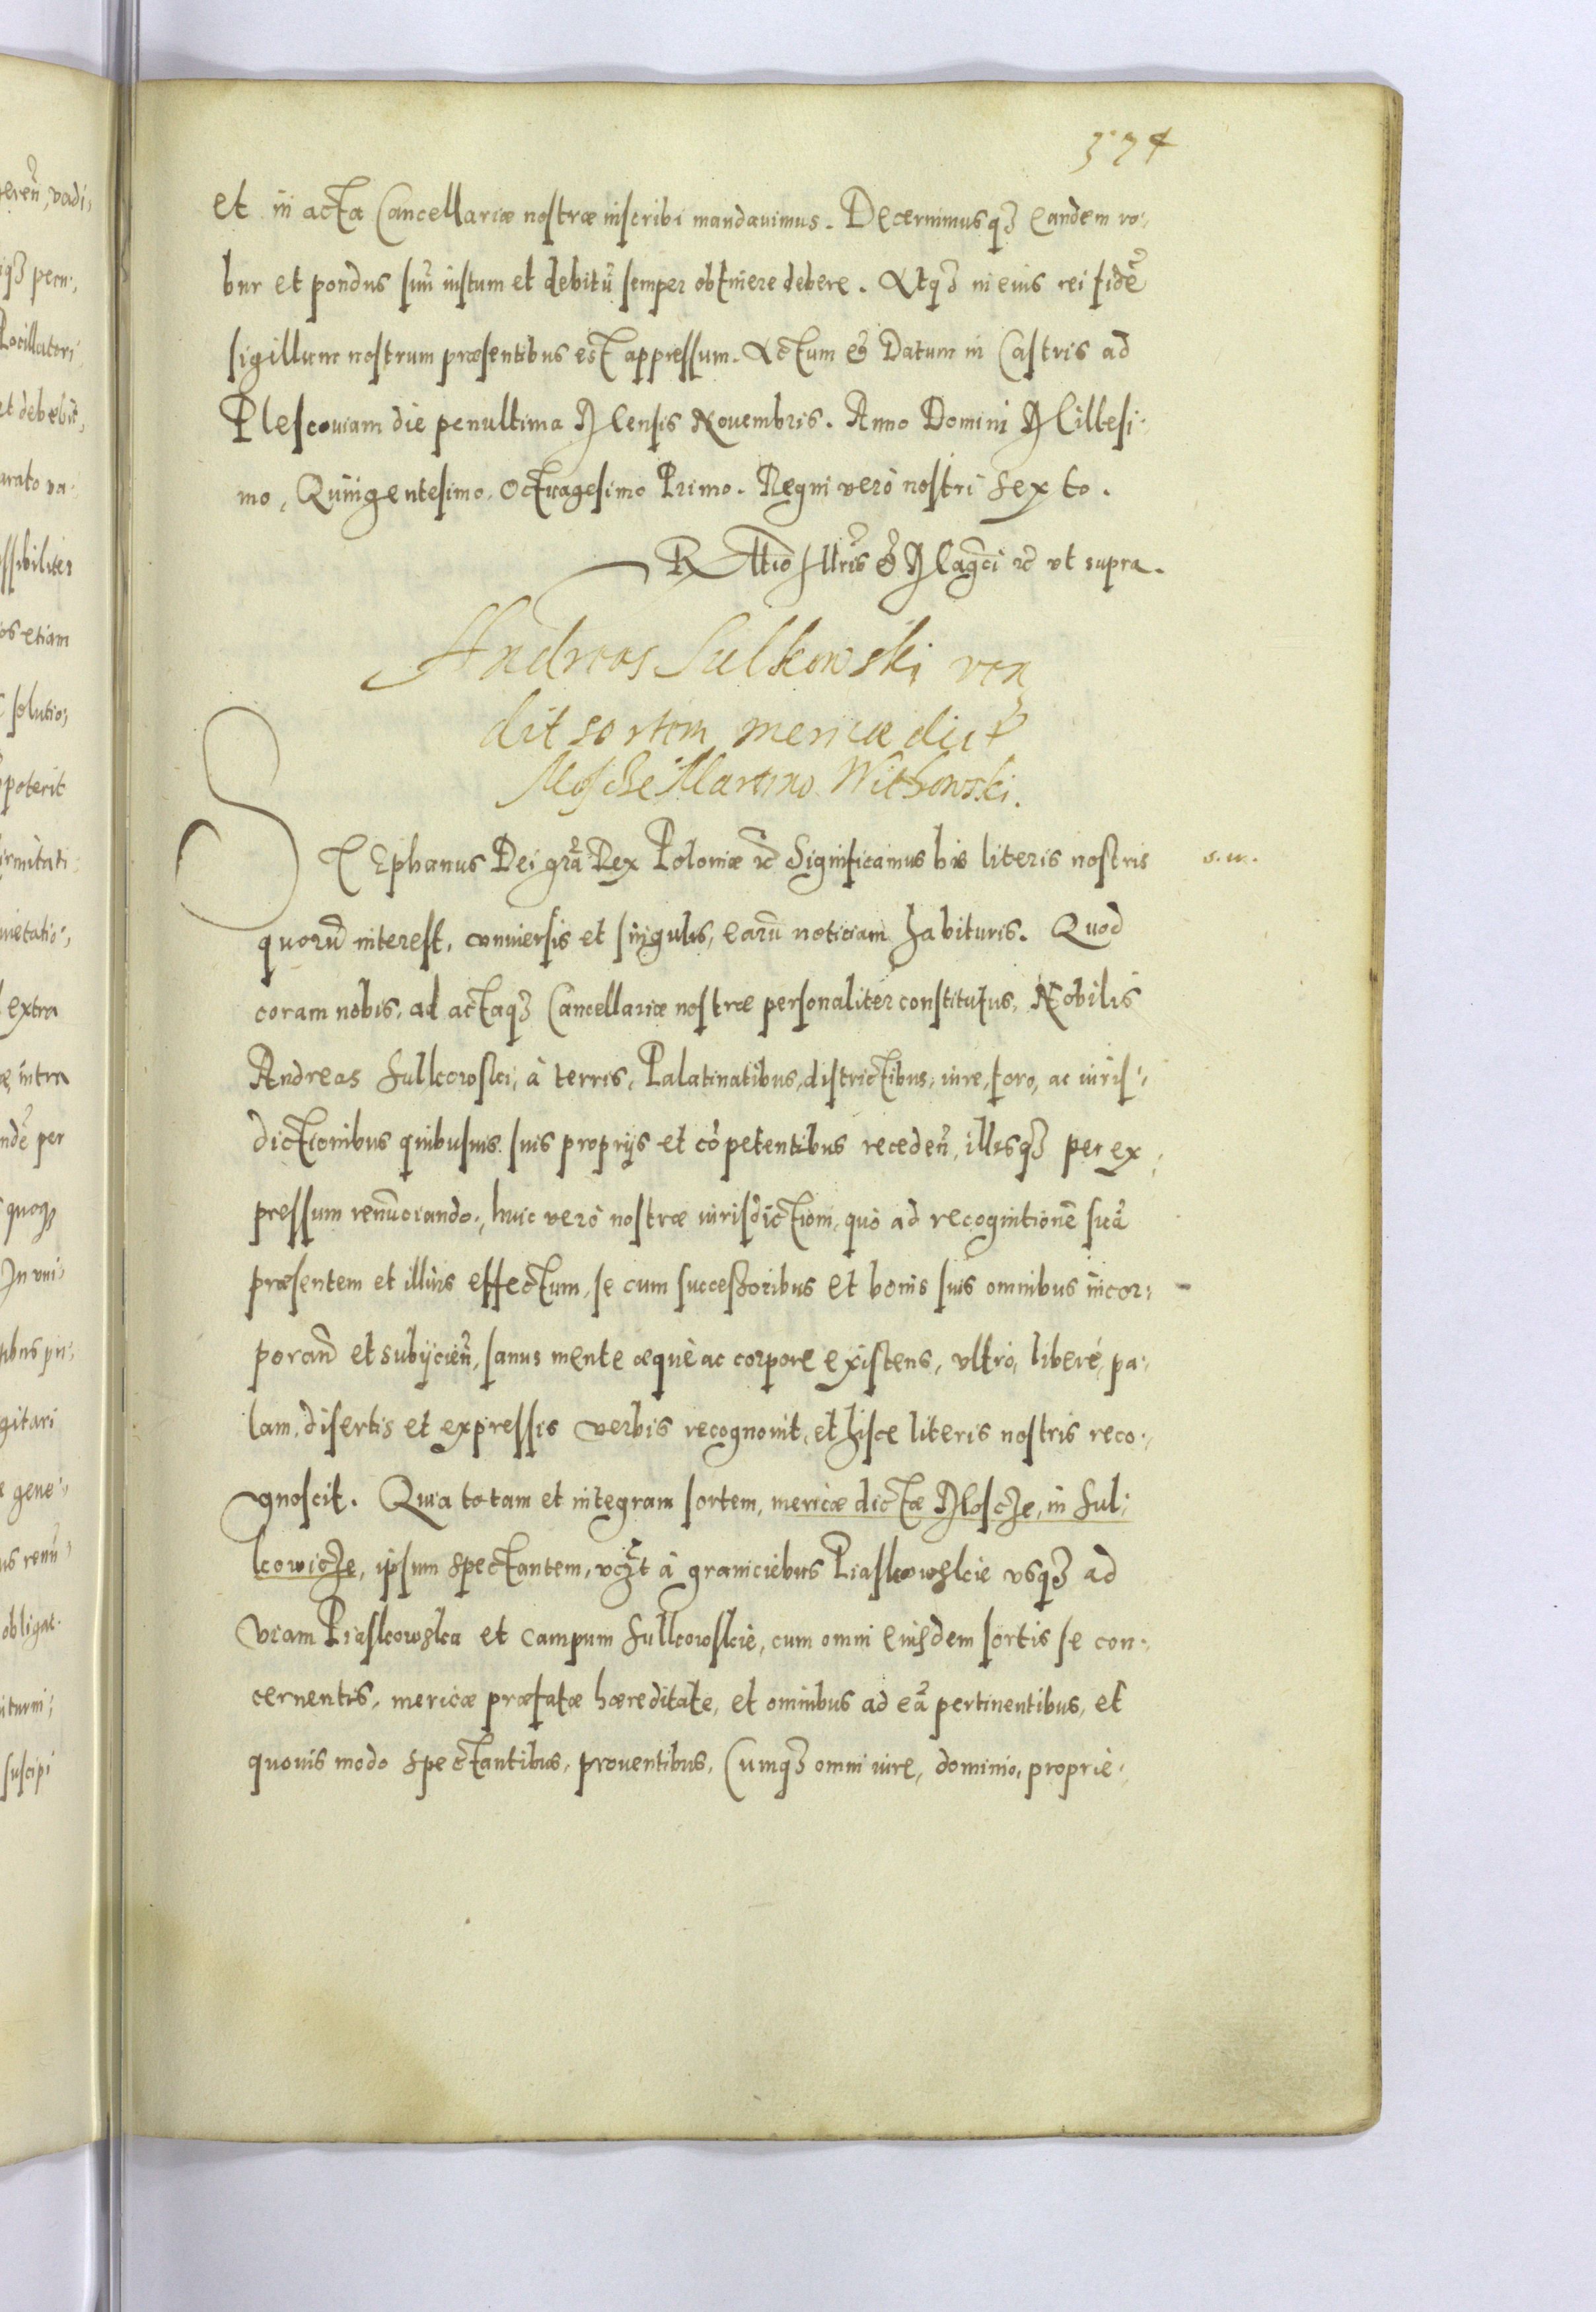 374
et in acta Cancellariæ nostræ inscribi mandauimus. Decernimusq₃ eandem ro:
bur et pondus suũ iustum et debitũ semper obtinere debere. Atq₃ in eius rei fidẽ
sigillum nostrum præsentibus est appressum. Actum & Datum in Castris ad
Plescouiam die penultima Mensis Nouembris. Anno Domini Millesi:
mo, Quingentesimo, Octuagesimo Primo. Regni verò nostri Sexto.
Rłłio Illris & Magci ꝛc vt supra.
Andreas Sulkowski ven
dit sortem mericæ dict
Mosczce Martino Witkowski.
STEphanus Dei grã Rex Poloniæ ꝛc Significamus his literis nostris
s. w.
quorũ interest, vniuersis et singulis, earũ noticiam habituris. Quod
coram nobis, ad actaq₃ Cancellariæ nostræ personaliter constitutus, Nobilis
Andreas Sulkowski, à terris, Palatinatibus, districtibus, iure, foro, ac iuris:
dictionibus quibusuis suis proprijs et cõpetentibus receden̄, illisq₃ per ex:
pressum renũciando, huic verò nostræ iurisdictioni, quò ad recognitionẽ suã
præsentem et illius effectum, se cum successoribus et bonis suis omnibus incor:
poran̄ et subijcien̄, sanus mente æquè ac corpore existens, vltrò, liberè, pa:
lam, disertis et expressis verbis recognouit, et hisce literis nostris reco:
gnoscit. Quia totam et integram sortem, mericæ dictæ Moscze, in Sul:
kowicze, ipsum spectantem, vczt à graniciebus Piaskowskie vsq₃ ad
viam Piaskowska et campum Sulkowskie, cum omni eiusdem sortis se con:
cernentis, mericæ præfatæ hæreditate, et omnibus ad eã pertinentibus, et
quouis modo spectantibus, prouentibus, Cumq₃ omni iure, dominio, proprie: